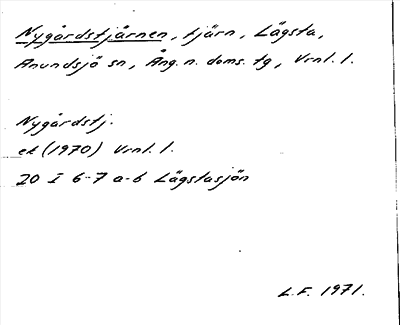 Nygårdstjärnen, tjärn, Lägsta,
Anundsjö sn, Ång. n. doms. tg, Vrnl. l.
Nygårdstj.
ek (1970) Vrnl. l.
20 I 6-7 a-b Lägstasjön
L.F. 1971.